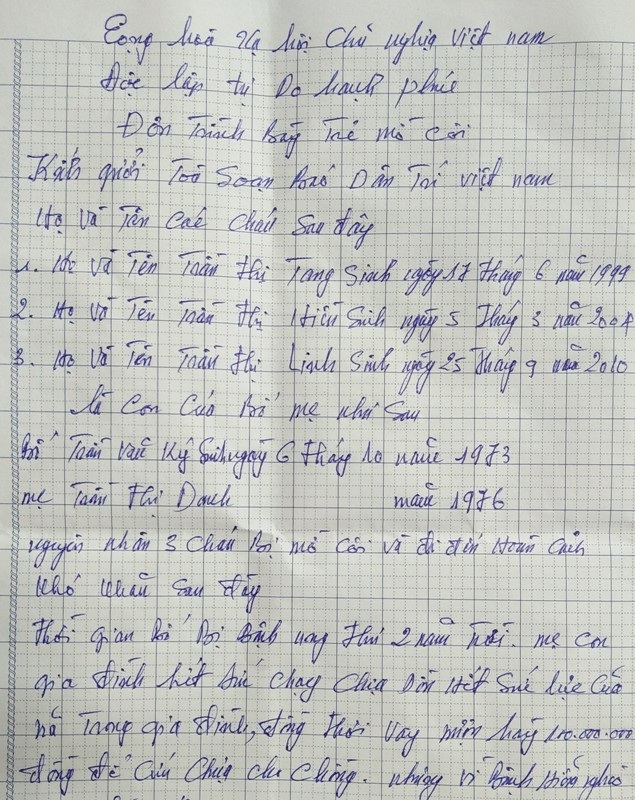 Cộng hoà xã hội Chủ nghĩa việt nam
Độc lập tự Do hạnh phúc
Đơn Trình Bày Trẻ mồ côi
Kính gửi Toà Soạn Báo Dân Trí việt nam
Họ Và Tên Các Cháu Sau đây
1. Họ Và Tên Trần thị Trang Sinh ngày 17 tháng 6 năm 1999
2. Họ Và Tên Trần thị Hiền Sinh ngày 5 Tháng 3 năm 2004
3. Họ Và Tên Trần thị Linh Sinh ngày 25 Tháng 9 năm 2010
là Con Của Bố mẹ như Sau
Bố Trần Văn Kỷ Sinh ngày 6 tháng 10 năm 1973
mẹ Trần thị Danh năm 1976
nguyên nhân 3 Cháu Bị mồ côi và đi đến Hoàn Cảnh
khó khăn Sau đây
thời gian Bố Bị Bệnh ung thư 2 năm trời. mẹ con
gia đình hết sức chạy Chữa Dồn hết Sức lực Của
Trong gia đình, đồng thời vay mượn 100.000.000
đồng để Cứu Chữa cho Chồng. nhưng vì Bệnh hiểm nghèo